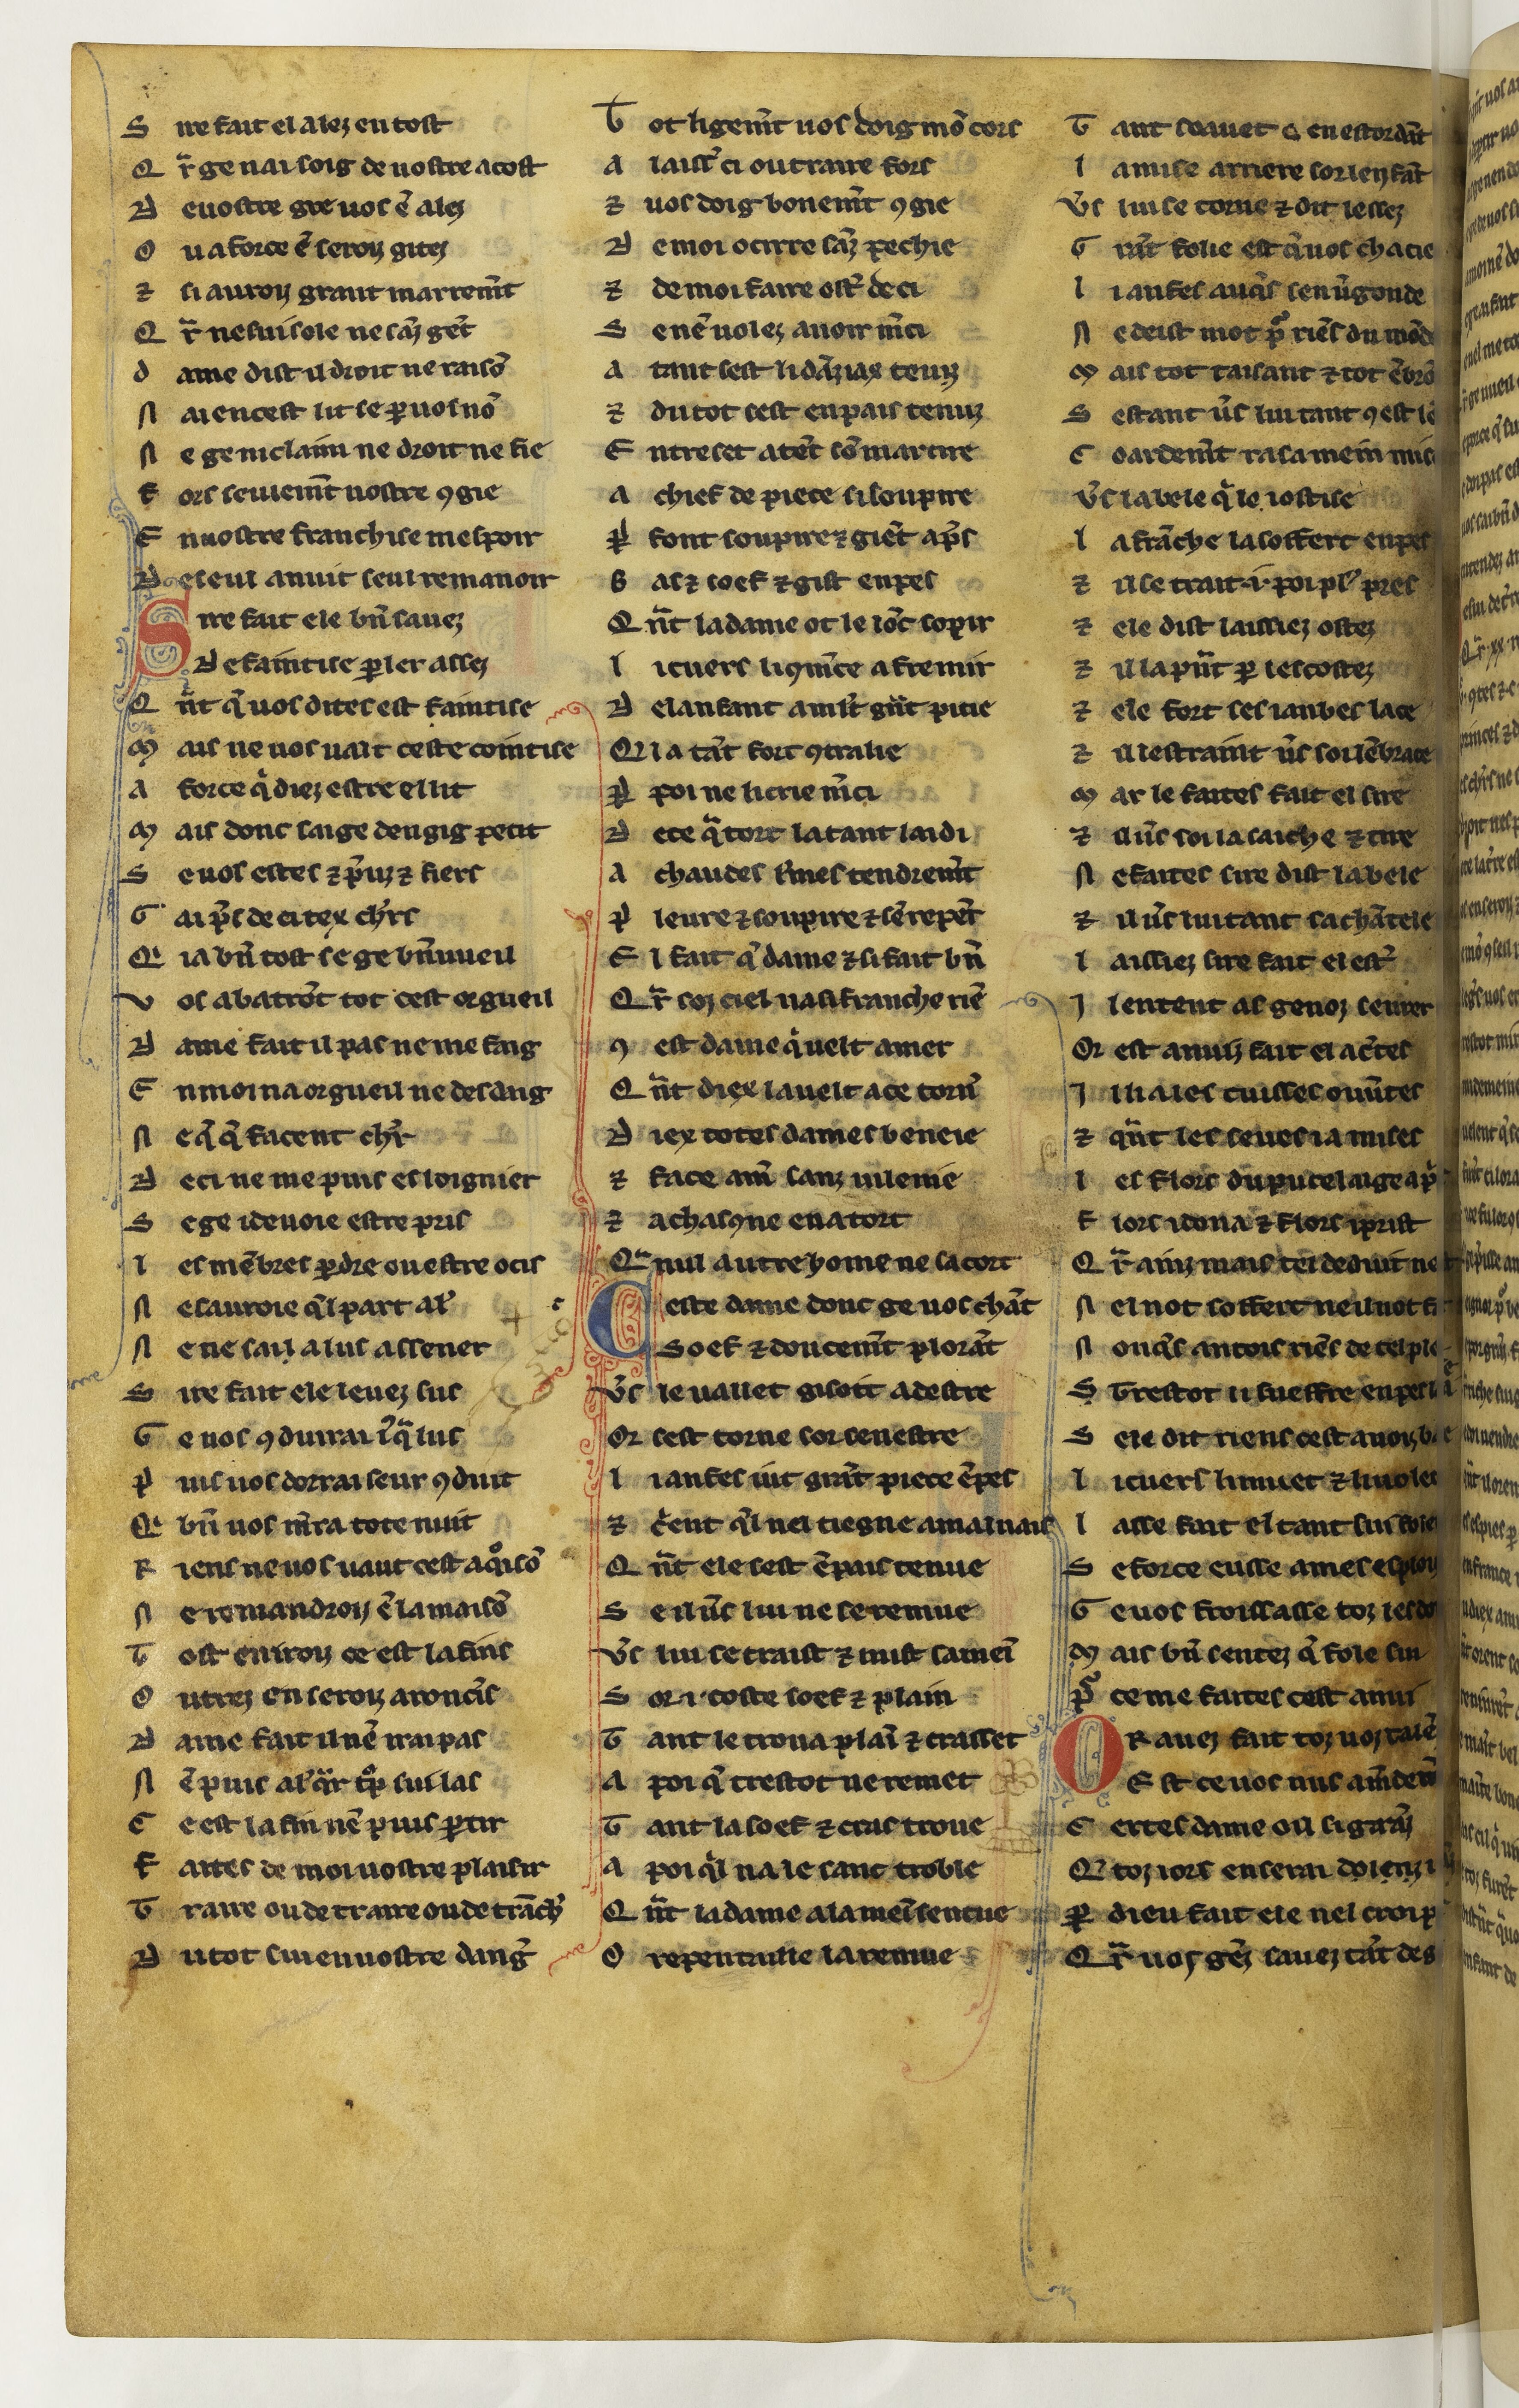 S ire fait el alez en tost
Q r̃ ge nai soig de uostre acost
D e uostre gre uos ẽ alez
O u a force ẽ seroiz gitez
⁊ si auroiz grant marremẽt
Q r̃ ne sui sole ne sãz gẽt
D ame dist il droit ne raisõ
N ai en cest lit se p̲ uos nõ
N e ge ni claim ne droit ne fie
F ors seulemẽt uostre ꝯgie
E n uostre franchise mespoir
D e seul anuit seul remanoir
S ire fait ele bñ sauez
D e faintise p̲ler assez
Q ñt q̃ uos dites est faintise
M ais ne uos uait ceste cointise
A force q̃diez estre el lit
M ais donc saige dengig petit
S e uos estes ⁊ p̃uz ⁊ fiers
G ai p̃s de ci tex ch̃rs
Q i a bñ tost se ge bñ uueil
V os abatrõt tot cest orgueil
D ame fait il pas ne me faig
E n moi na orgueil ne desdaig
N e q̃ q̃ facent ch̃r
D e ci ne me puis esloignier
S e ge i deuoie estre pris
L es mẽbres p̲dre ou estre ocis
N e sauroie q̃l part al̃
N e ne sai a lus assener
S ire fait ele leuez sus
G e uos ꝯduirai iq̃ lus
P uis uos dorrai seur ꝯduit
Q i bñ uos mẽra tote nuit
R iens ne uos uaut cest aq̃isõ
N e remandroiz ẽ la maisõ
T ost en iroiz ce est la fins
O utrez en seroiz a roncis
D ame fait il nẽ irai pas
N ẽ puis al̃ q̃r tp̃ sui las
C e est la fin nẽ puis p̲tir
F aites de moi uostre plaisir
T raire ou detraire ou detrãch̃
D u tot sui en uostre dang̃
T ot ligemẽt uos doig mõ cors
A laiss̃ ci ou traire fors
⁊ uos doig bonemẽt ꝯgie
D e moi ocirre sãz pechie
⁊ de moi faire ost̃ de ci
S e nẽ uolez auoir m̃ci
A tant sest li dãziax teuz
⁊ du tot sest en pais tenuz
E ntreset atẽt sõ martire
A chief de piece si soupire
P font soupire ⁊ giẽt ap̃s
B as ⁊ soef ⁊ gist en pes
Q ñt la dame ot le iõc sopir
L i cuers li ꝯmẽce a fremir
D e lanfant a mlt̃ g̃nt pitie
Q i la tãt fort ꝯtralie
P poi ne li crie m̃ci
D e ce q̃ tort la tant laidi
A chaudes l̃mes tendremẽt
P leure ⁊ soupire ⁊ sẽ repẽt
E l fait q̃ dame ⁊ si fait bñ
Q r̃ soz ciel na si franche riẽ
ꝯ est dame q̃ uelt amer
Q ñt diex la uelt a ce torñ
D iex totes dames beneie
⁊ face am̃ sanz uilenie
⁊ a chascune en atort
Q ã nul autre home ne sacort
C este dame donc ge uos chãt
Soef ⁊ doucemẽt plorãt
V̾s le uallet gisoit a destre
Or sest torne sor senestre
L i anfes iut grãt piece ẽpes
⁊ c̃ent q̃l nel tiegne a mauuais
Q ñt ele sest ẽ pais tenue
S e il u̾s lui ne se remue
V̾s lui se traist ⁊ mist sa meĩ
S or .i. coste soef ⁊ plain
T ant le troua plaĩ ⁊ crasset
A poi q̃ trestot ne remet
T ant la soef ⁊ cras troue
A poi q̃l na le sanc troble
Q ñt la dame a la meĩ sentue
O repentaille la remue
T ant souauet en estordãt
L a mise arriere sor lenfãt
V̾s lui se torne ⁊ dit lessiez
G rãt folie est q̃ uos chacie
L i anfes auq̃s sen u̾gonde
N e deist mot p̲ riẽs du mõd
M ais tot taisant ⁊ tot ẽbrõ
S estant u̾s lui tant ꝯ est
C oardemẽt ra sa mein mis
V̾s la bele q̃ le iostise
L a frãche la soffert en pes
⁊ il se trait .i. poi pl᷒ pres
⁊ ele dist laissiez ostez
⁊ il la p̃nt p̲ les costez
⁊ ele fort ses ianbes lace
⁊ il lestraint u̾s soi lẽbrace
M ar le faites fait el sire
⁊ il u̾s soi la saiche ⁊ tire
N e faites sire dist la bele
⁊ il u̾s lui tant sachãtele
L aissiez sire fait el est̃
I l entent as genoz seurer
Or est anuiz fait el ac̃tes
I l li a les cuisses ouu̾tes
⁊ q̃nt les seues i a mises
L es flors du pucelaige a p̃
F lors i dona ⁊ flors i prist
Q r̃ ainz mais tel deduit ne
N el not soffert ne il not
N on q̃s ancois riẽs de tel ple
S trestot li sueffre en pes
S ele dit riens cest auoiz b
L i cuers li muet ⁊ li uolet
L asse fait el tant sui foie
S e force eusse a mes esploiz
G e uos froissasse toz les do
M ais bñ sentez q̃ fole sui
P̲ ce me faites cest anui
O R auez fait toz uoz talẽ
E st ce uos nus am̃demẽ
C ertes dame oil si gñz
Q toz iors en serai dolenz
P̲ dieu fait ele nel croi p
Q r̃ uos gẽz sauez tãt des